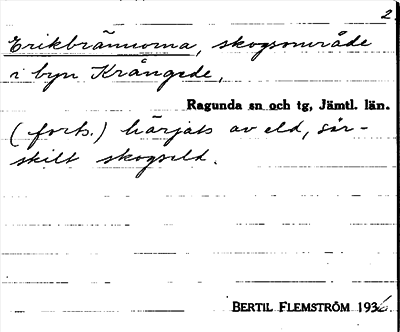 2.
Erikbrännorna, skogsområde
i byn Krångede,
Ragunda sn och tg, Jämtl. län.
(forts.) härjats av eld, sär-
skilt skogseld.
BERTIL FLEMSTRÖM 1936.